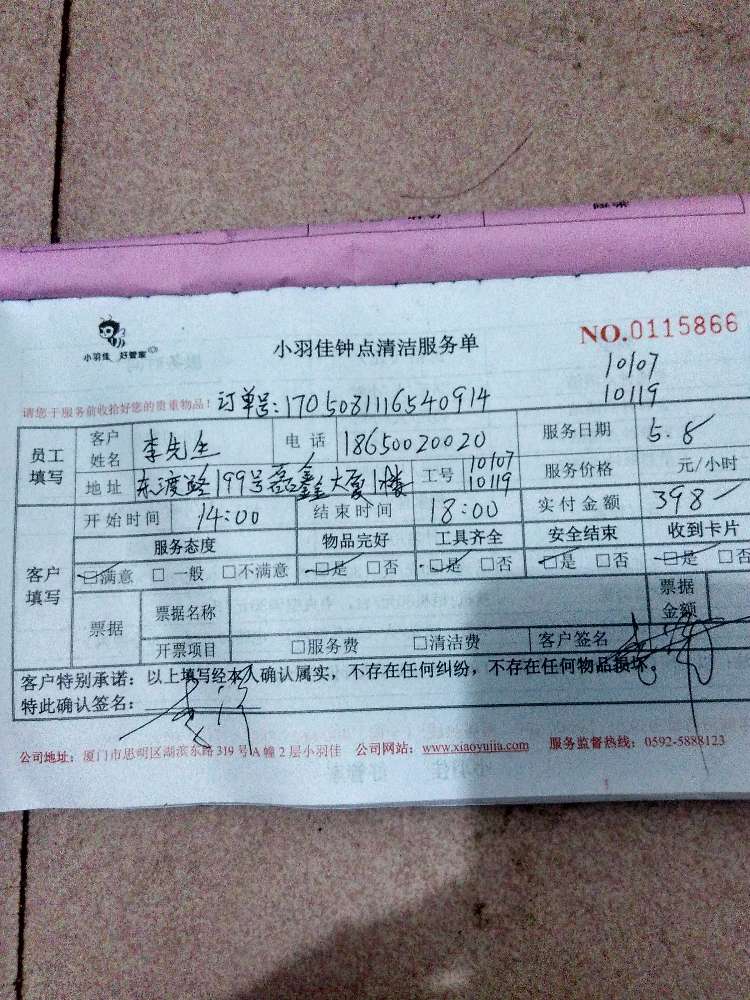 小羽佳 好管家
小羽佳钟点清洁服务单
NO.0115866
10107
10119
请您于服务前收拾好您的贵重物品！ 订单号：1705081116540914
员工填写 客户姓名 李先生 电话 18650020020 服务日期 5.8
地址 东渡路199号磊鑫大厦1楼 工号 10107 10119 服务价格 元/小时
客户填写 开始时间 14:00 结束时间 18:00 实付金额 398
服务态度 物品完好 工具齐全 安全结束 收到卡片
☑满意 □一般 □不满意 ☑是 □否 ☑是 □否 ☑是 □否 ☑是 □否
票据 票据名称 票据金额
开票项目 □服务费 □清洁费 客户签名
客户特别承诺：以上填写经本人确认属实，不存在任何纠纷，不存在任何物品损坏。
特此确认签名：
公司地址：厦门市思明区湖滨东路319号A幢2层小羽佳 公司网站：www.xiaoyujia.com 服务监督热线：0592-5888123